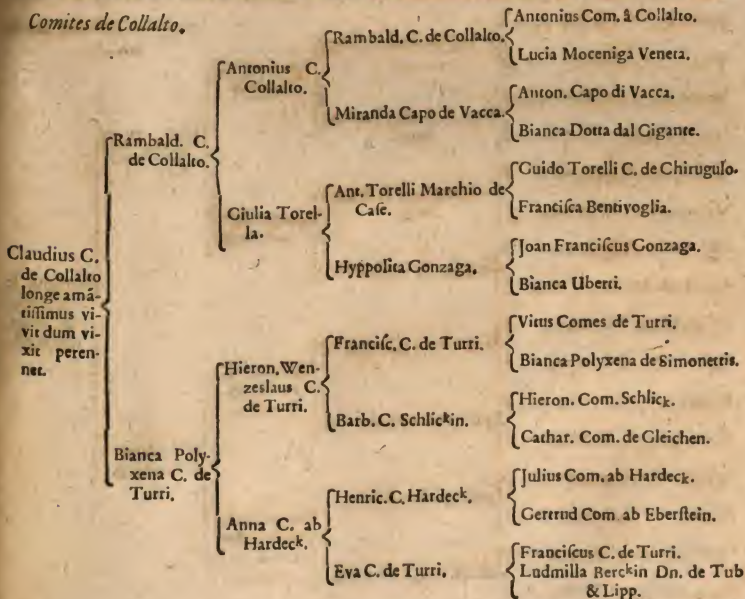 Comites de Collalto.
Claudius C.
de Collalto
longe amã-
tissimus vi-
vit dum vi-
xit peren-
net.
Rambald. C.
de Collalto.
Bianca Poly-
xena C. de
Turri.
Antonius C.
Collalto.
Giulia Torel-
la.
Hieron. Wen-
zeslaus C.
de Turri.
Anna C. ab
Hardeck.
Rambald. C. de Collalto.
Miranda Capo de Vacca.
Ant. Torelli Marchio de
Case.
Hyppolita Gonzaga.
Francisc. C. de Turri.
Barb. C. Schlickin.
Henric. C. Hardeck.
Eva C. de Turri.
Antonius Com. â Collalto.
Lucia Moceniga Veneta.
Anton. Capo di Vacca.
Bianca Dotta dal Gigante.
Guido Torelli C. de Chirugulo.
Francisca Bentivoglia.
Joan Franciscus Gonzaga.
Bianca Uberti.
Vitus Comes de Turri.
Bianca Polyxena de Simonettis.
Hieron. Com. Schlick.
Cathar. Com. de Gleichen.
Julius Com. ab Hardeck.
Gertrud Com. ab Eberstein.
Franciscus C. de Turri.
Ludmilla Berckin Dn. de Tub
& Lipp.